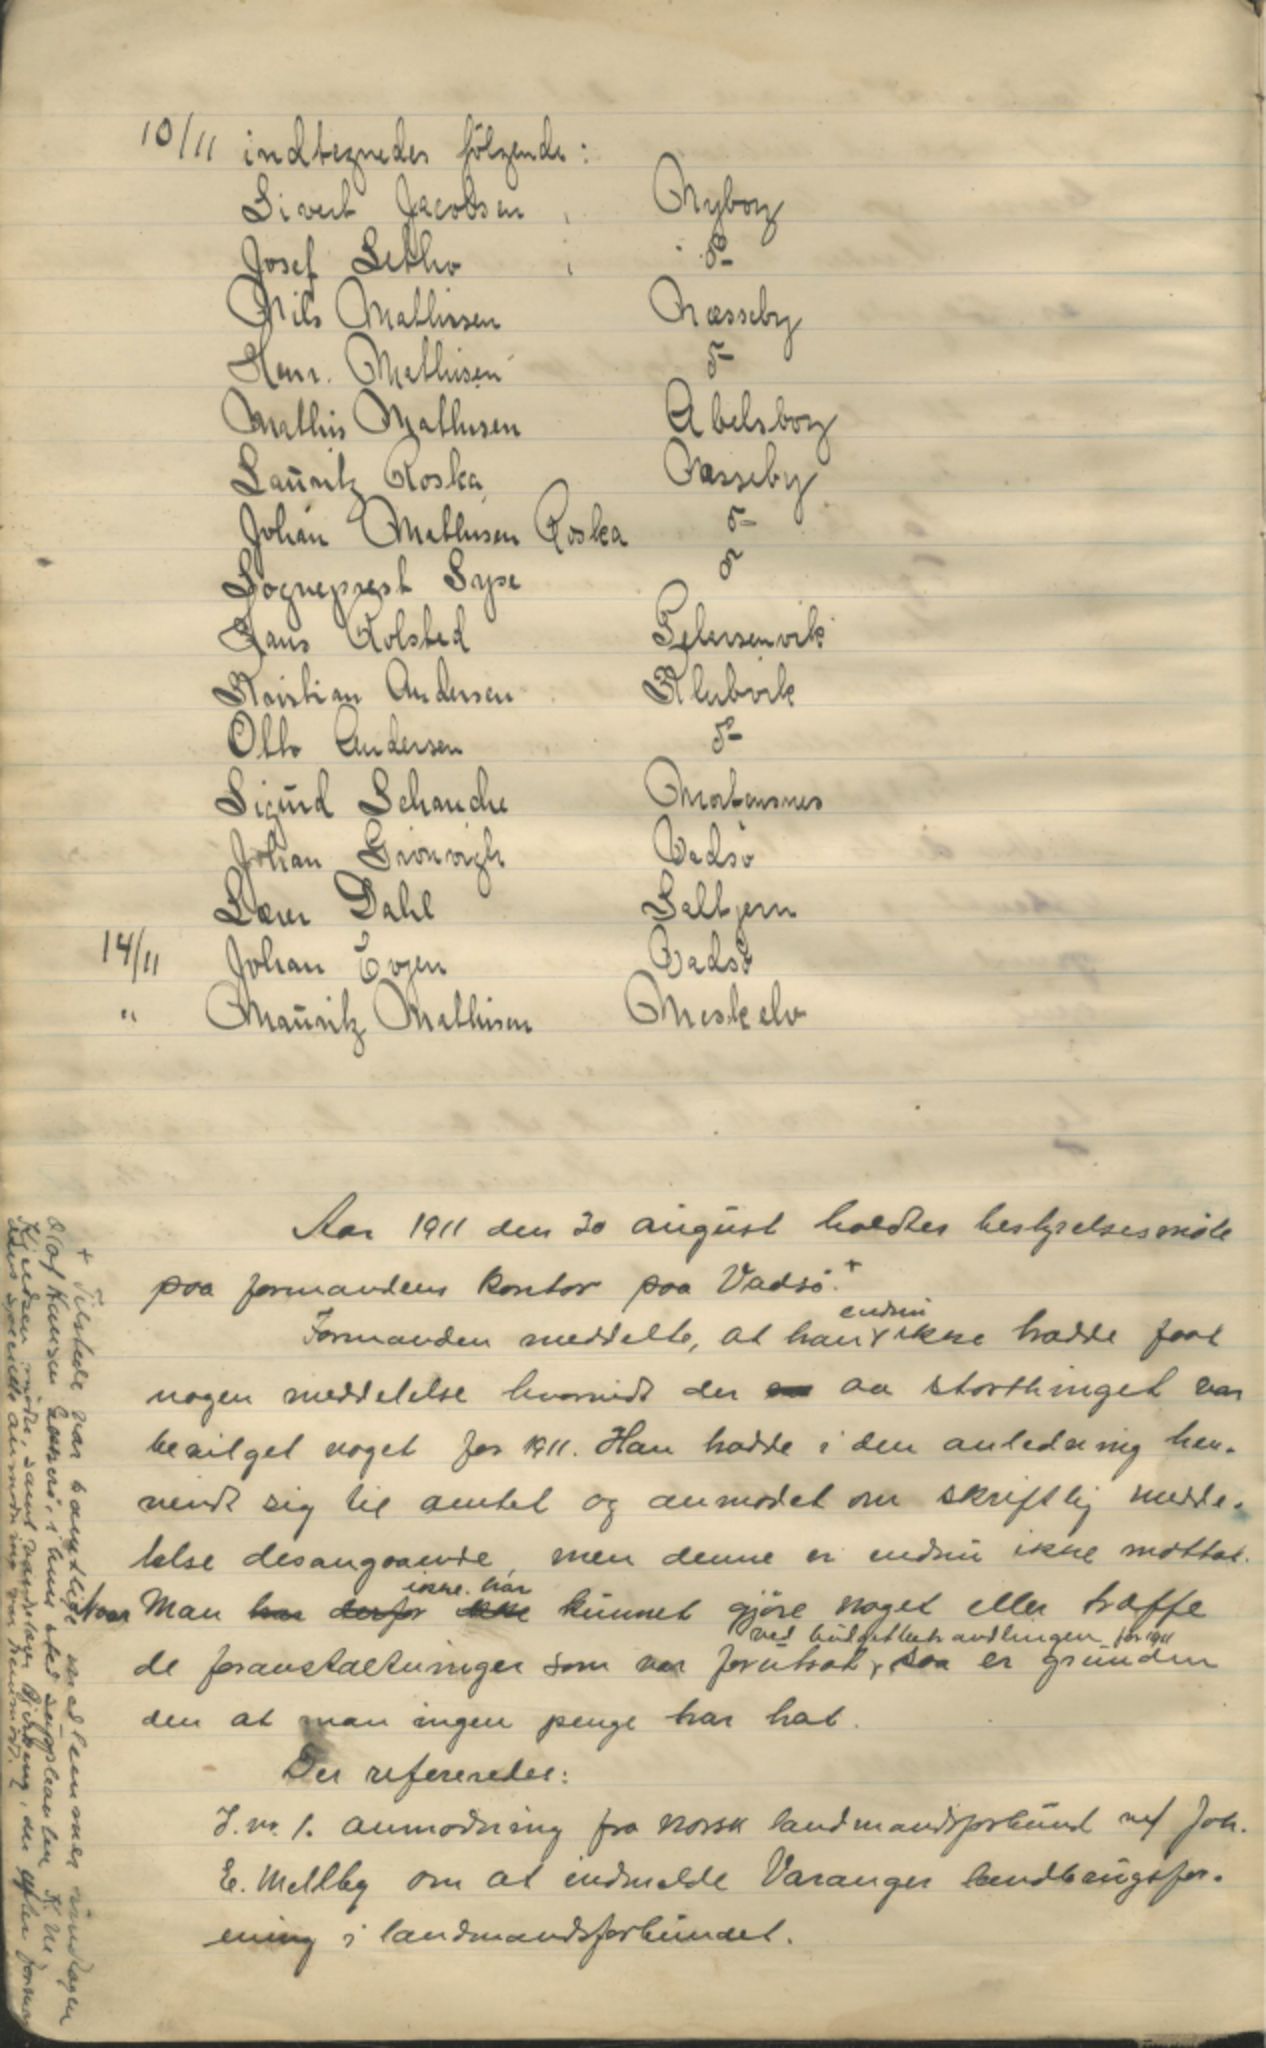 10/11 indtegnedes følgende:
Sivert Jacobsen, Nyborg
Josef Letho, do-
Nils Mathissen Næsseby
Henr. Mathisen do-
Mathis Mathisen Abelsborg
Lauritz Roska Næsseby
Johan Mathisen Roska do-
Sogneprest Lyse do
Hans Rolsted Petersenvik
Kristian Andersen Klubvik
Otto Andersen do-
Sigurd Schanche Mortensnes
Johan Grönvigh Vadsö
Lærer Dahl Saltjern
14/11 Johan Evjen Vadsö
" Mauritz Mathisen Meskelv
Aar 1911 den 30 august holdtes bestyrelsesmöte
paa formandens kontor paa Vadsö.+
Formanden meddelte, at han endnu ikke hadde faat
nogen meddelelse hvorvidt der av storthinget var
bevilget noget for 1911. Han hadde i den anledning hen-
vendt sig til amtet og anmodet om skriftlig medde-
lelse desangaaende men denne er endnu ikke mottat.
Naar Man har derfor ikke ikke har kunnet gjöre noget eller træffe
de foranstaltninger som var forutsat ved budgetbehandlingen for 1911, saa er grunden
den at man ingen penge har hat.
Der refereredes:
J.nr. 1. anmodning fra norsk landmandsforbund ved Joh.
E. Mellby om at indmelde Varanger landbrugsfor-
ening i landmandsforbundet.
+ Tilstede var samtlige medlemmer undtagen
Olaf Hansen, i hans sted suppleanten K. Nu
Kjeldsen möte, samt varder, der efter forman
dens specielle anmodning var fremmödt.